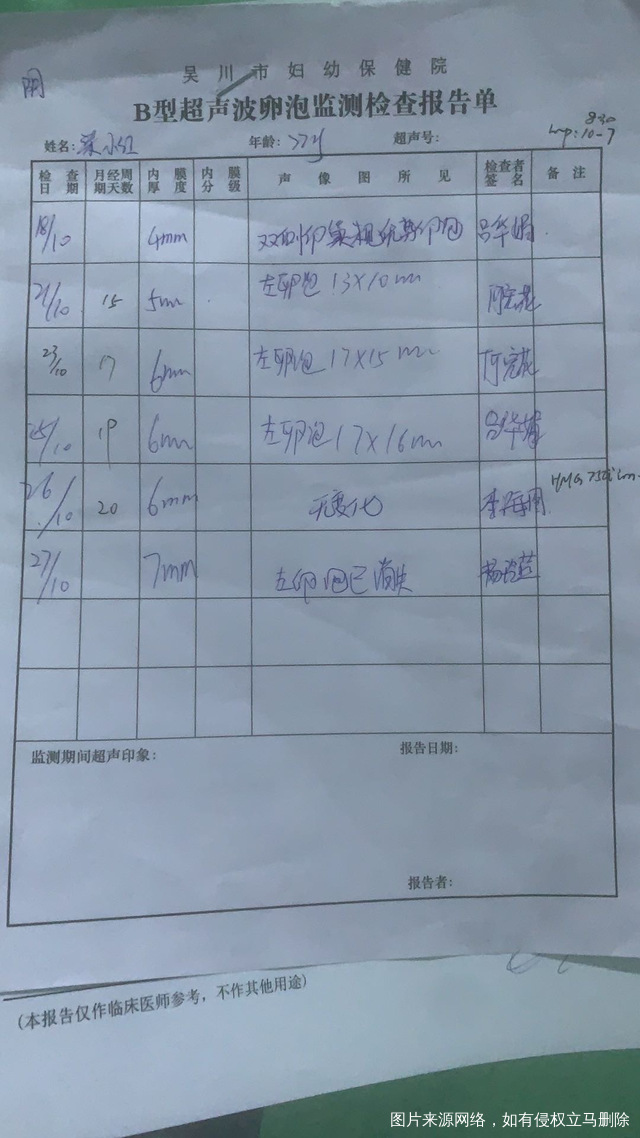 吴川市妇幼保健院
阴
B型超声波卵泡监测检查报告单
8:30
姓名: 年龄: 27岁 超声号: Lmp: 10-7
检查日期 月经周期天数 内膜厚度 内膜分级 声像图所见 检查者签名 备注
18/10 4mm
21/10 15 5mm 左卵泡 13X10mm
23/10 17 6mm 左卵泡 17X15mm
25/10 19 6mm 左卵泡 17X16mm
26/10 20 6mm 无变化
27/10 7mm 左卵泡已消失
监测期间超声印象: 报告日期:
报告者:
(本报告仅作临床医师参考，不作其他用途)
图片来源网络，如有侵权立马删除